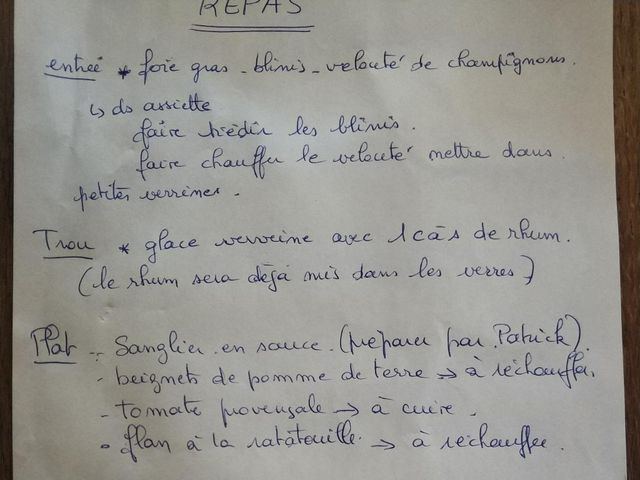 REPAS
entrée * foie gras - blinis - velouté de champignons.
↳ ds assiette
faire tiédir les blinis.
faire chauffer le velouté mettre dans.
petites verrines.
Trou * glace verveine avec 1 càs de rhum.
(le rhum sera déjà mis dans les verres)
Plat - Sanglier en sauce. (préparer par Patrick).
- beignets de pomme de terre → à réchauffer.
- tomate provençale → à cuire.
- flan à la ratatouille. → à réchauffer.